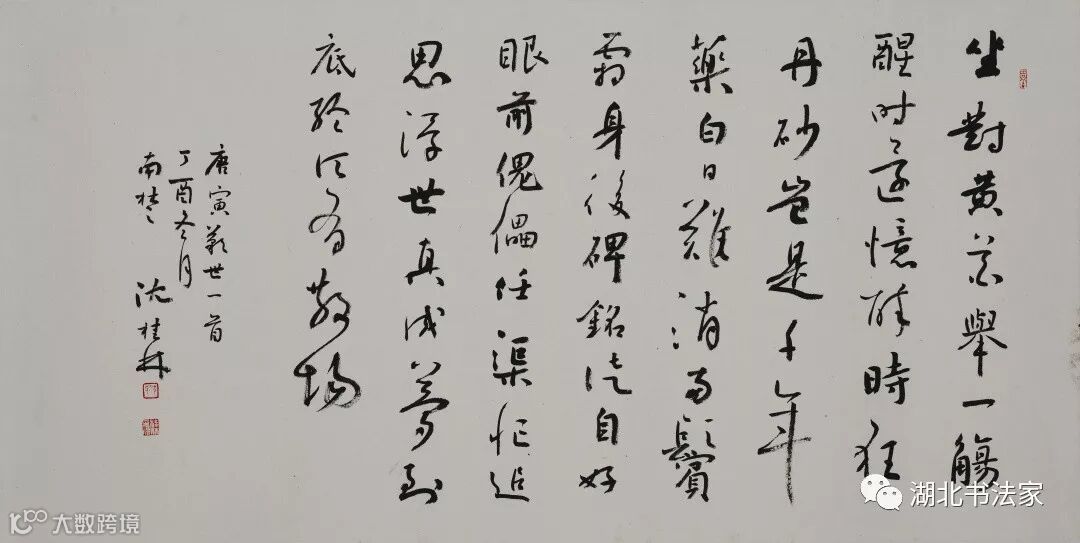 坐對黄花舉一觴
醒时還憶醉時狂
丹砂豈是千年
藥白日難消兩鬢
霜身後碑銘徒自好
眼前傀儡任渠忙追
思浮世真成夢到
底終須有散場
唐寅歎世一首
丁酉冬月
南楚 沈桂林
湖北书法家
大数跨境